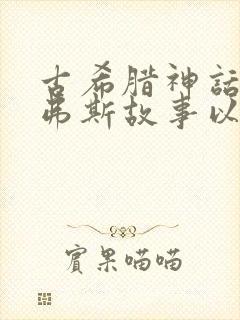 古希腊神話
弗斯故事以
賓果喵喵